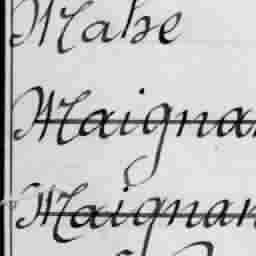 Mahe
Maigna
Maignan